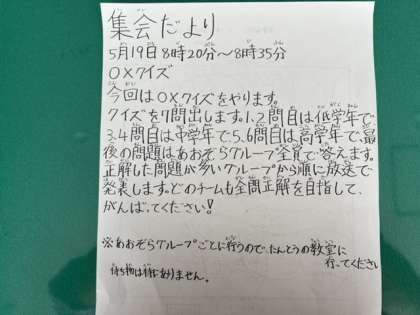 集会だより
5月19日8時20分～8時35分
OXクイズ
今回はOXクイズをやります。
クイズを7問出します。1,2問目は低学年で
3.4問目は中学年で、5.6問目は高学年で、最
後の問題はあおぞらグループ全員で答えます。
正解した問題が多いグループから順に放送で
発表します。どのチームも全問正解を目指して、
がんばってください!
※あおぞらグループごとに行うので、たんとうの教室に
行ってください
持ち物は特にありません。